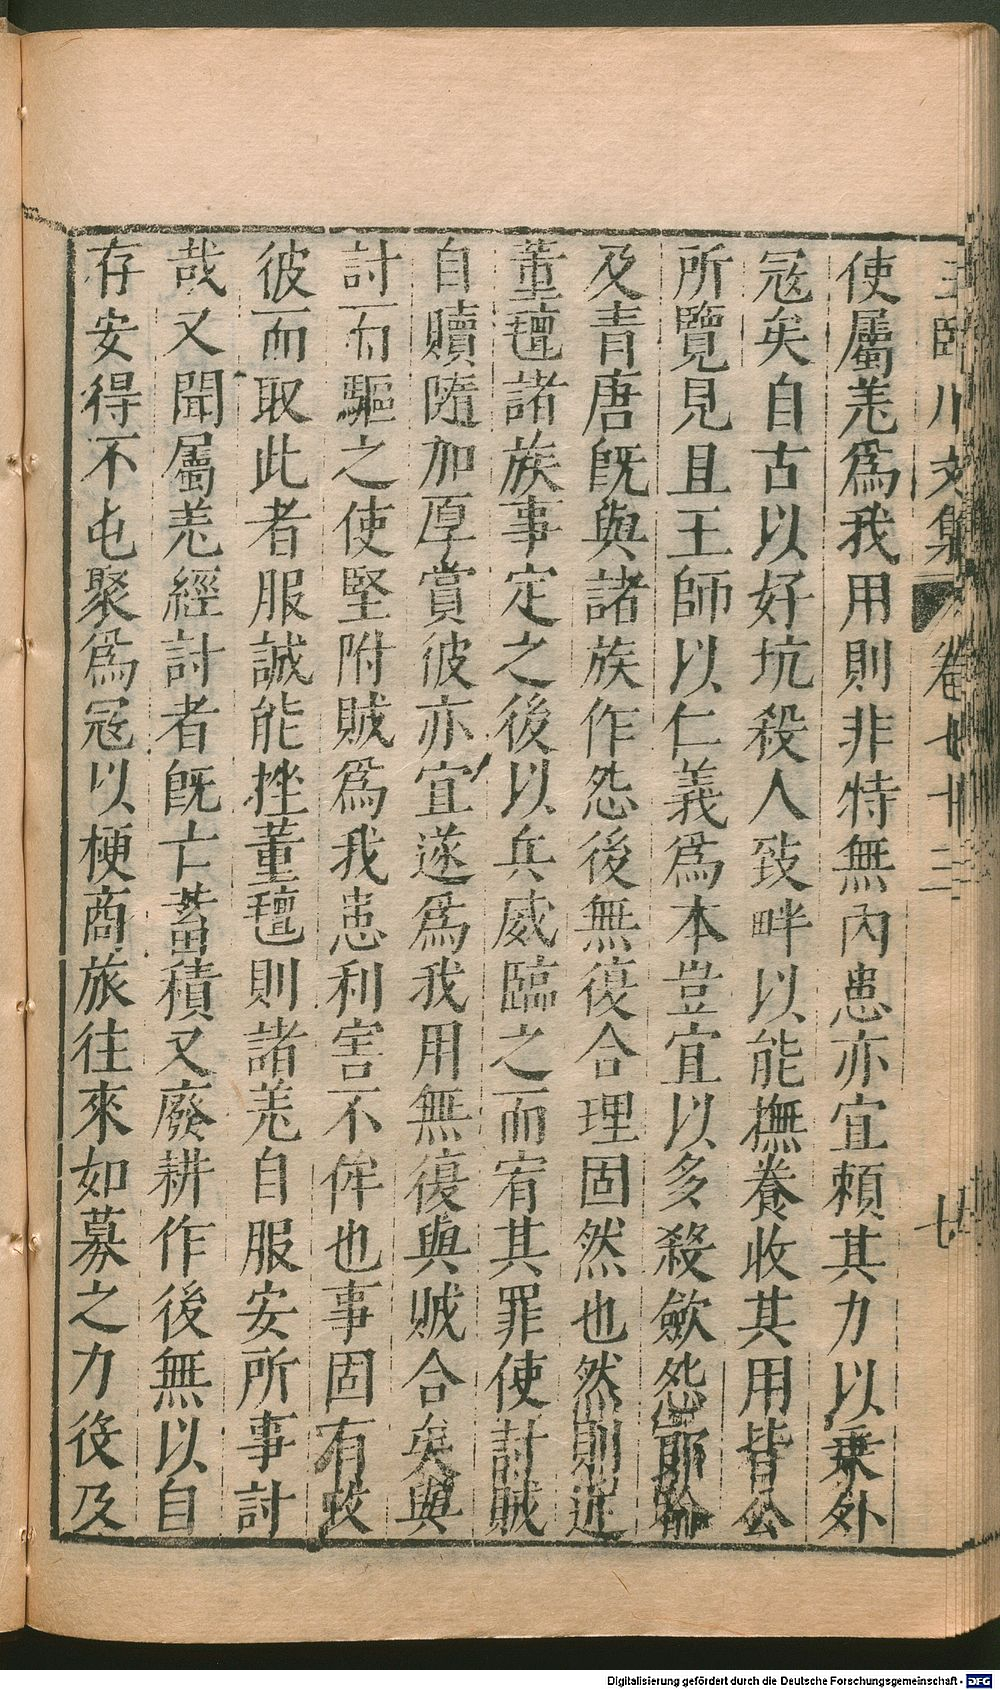 王臨川文集 卷七十三 七
使屬羌爲我用則非特無內患亦宜賴其力以乗外
冦矣自古以好坑殺人致畔以能撫養收其用皆公
所覽見且王師以仁義爲本豈宜以多殺歛怨耶喻
及青唐旣與諸族作怨後無復合理固然也然則近
董氊諸族事定之後以兵威臨之而宥其罪使討賊
自贖隨加厚賞彼亦宜遂爲我用無復與賊合矣與
討而驅之使堅附賊爲我患利害不侔也事固有攻
彼而取此者服誠能挫董氊則諸羌自服安所事討
哉又聞屬羌經討者旣亡蓄積又廢耕作後無以自
存安得不屯聚爲冦以梗商旅往來如募之力役及
Digitalisierung gefördert durch die Deutsche Forschungsgemeinschaft - DFG